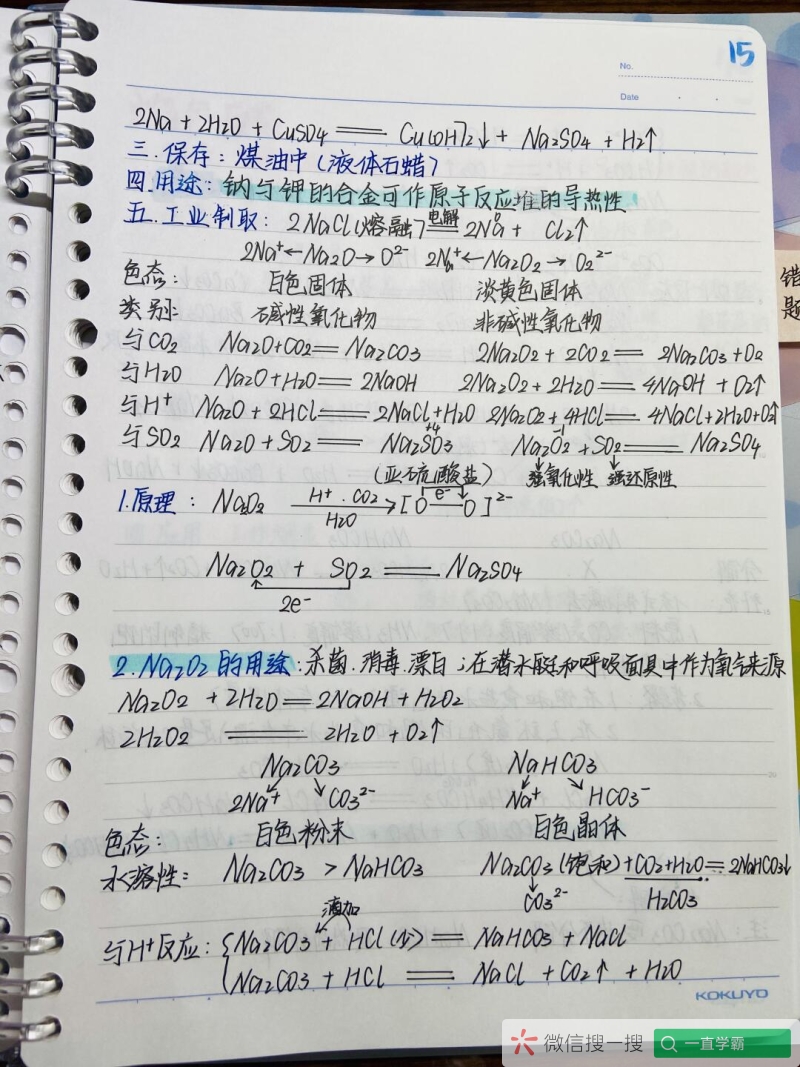 15
No.
Date
2Na + 2H2O + CuSO4 == Cu(OH)2↓ + Na2SO4 + H2↑
三.保存: 煤油中(液体石蜡)
四.用途: 钠与钾的合金可作原子反应堆的导热性
五.工业制取: 2NaCl(熔融)电解==2Na + Cl2↑
2Na+←Na2O→O2- 2Na+←Na2O2→O22-
色态: 白色固体 淡黄色固体
类别: 碱性氧化物 非碱性氧化物
与CO2 Na2O+CO2== Na2CO3 2Na2O2+2CO2== 2Na2CO3+O2
与H2O Na2O+H2O== 2NaOH 2Na2O2+2H2O== 4NaOH + O2↑
与H+ Na2O + 2HCl== 2NaCl+H2O 2Na2O2+4HCl== 4NaCl+2H2O+O2↑
与SO2 Na2O+SO2== Na2SO3 +4 Na2O2 -1 +SO2== Na2SO4
(亚硫酸盐) 强氧化性 强还原性
1.原理: Na2O2 H+.CO2 H2O → [O e- O]2-
Na2O2 + SO2 == Na2SO4
2e-
2.Na2O2的用途: 杀菌.消毒.漂白;在潜水艇和呼吸面具中作为氧气来源
Na2O2 + 2H2O== 2NaOH + H2O2
2H2O2 == 2H2O + O2↑
Na2CO3 NaHCO3
2Na+ CO32- Na+ HCO3-
色态: 白色粉末 白色晶体
水溶性: Na2CO3 > NaHCO3 Na2CO3(饱和)+CO2+H2O== 2NaHCO3↓
CO32- H2CO3
滴加
与H+反应: {Na2CO3 + HCl(少)== NaHCO3 + NaCl
Na2CO3 + HCl == NaCl + CO2↑ + H2O
KOKUYO
错
题
微信搜一搜 一直学霸